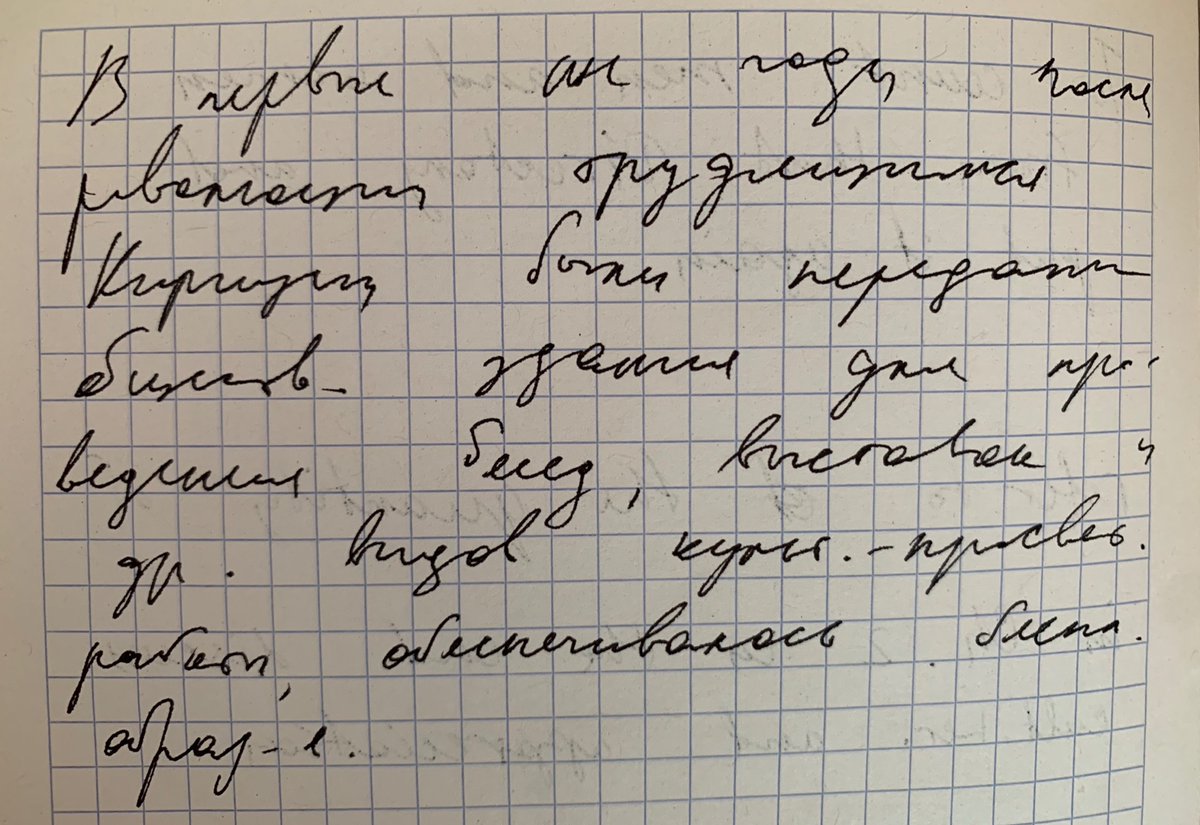 В первые годы после
революции трудящимся
Киргизии были переданы
обществ- здания для про-
ведения бесед, выставок и
др. видов культ.-просвет.
работы, обеспечивалось беспл.
образ-е.